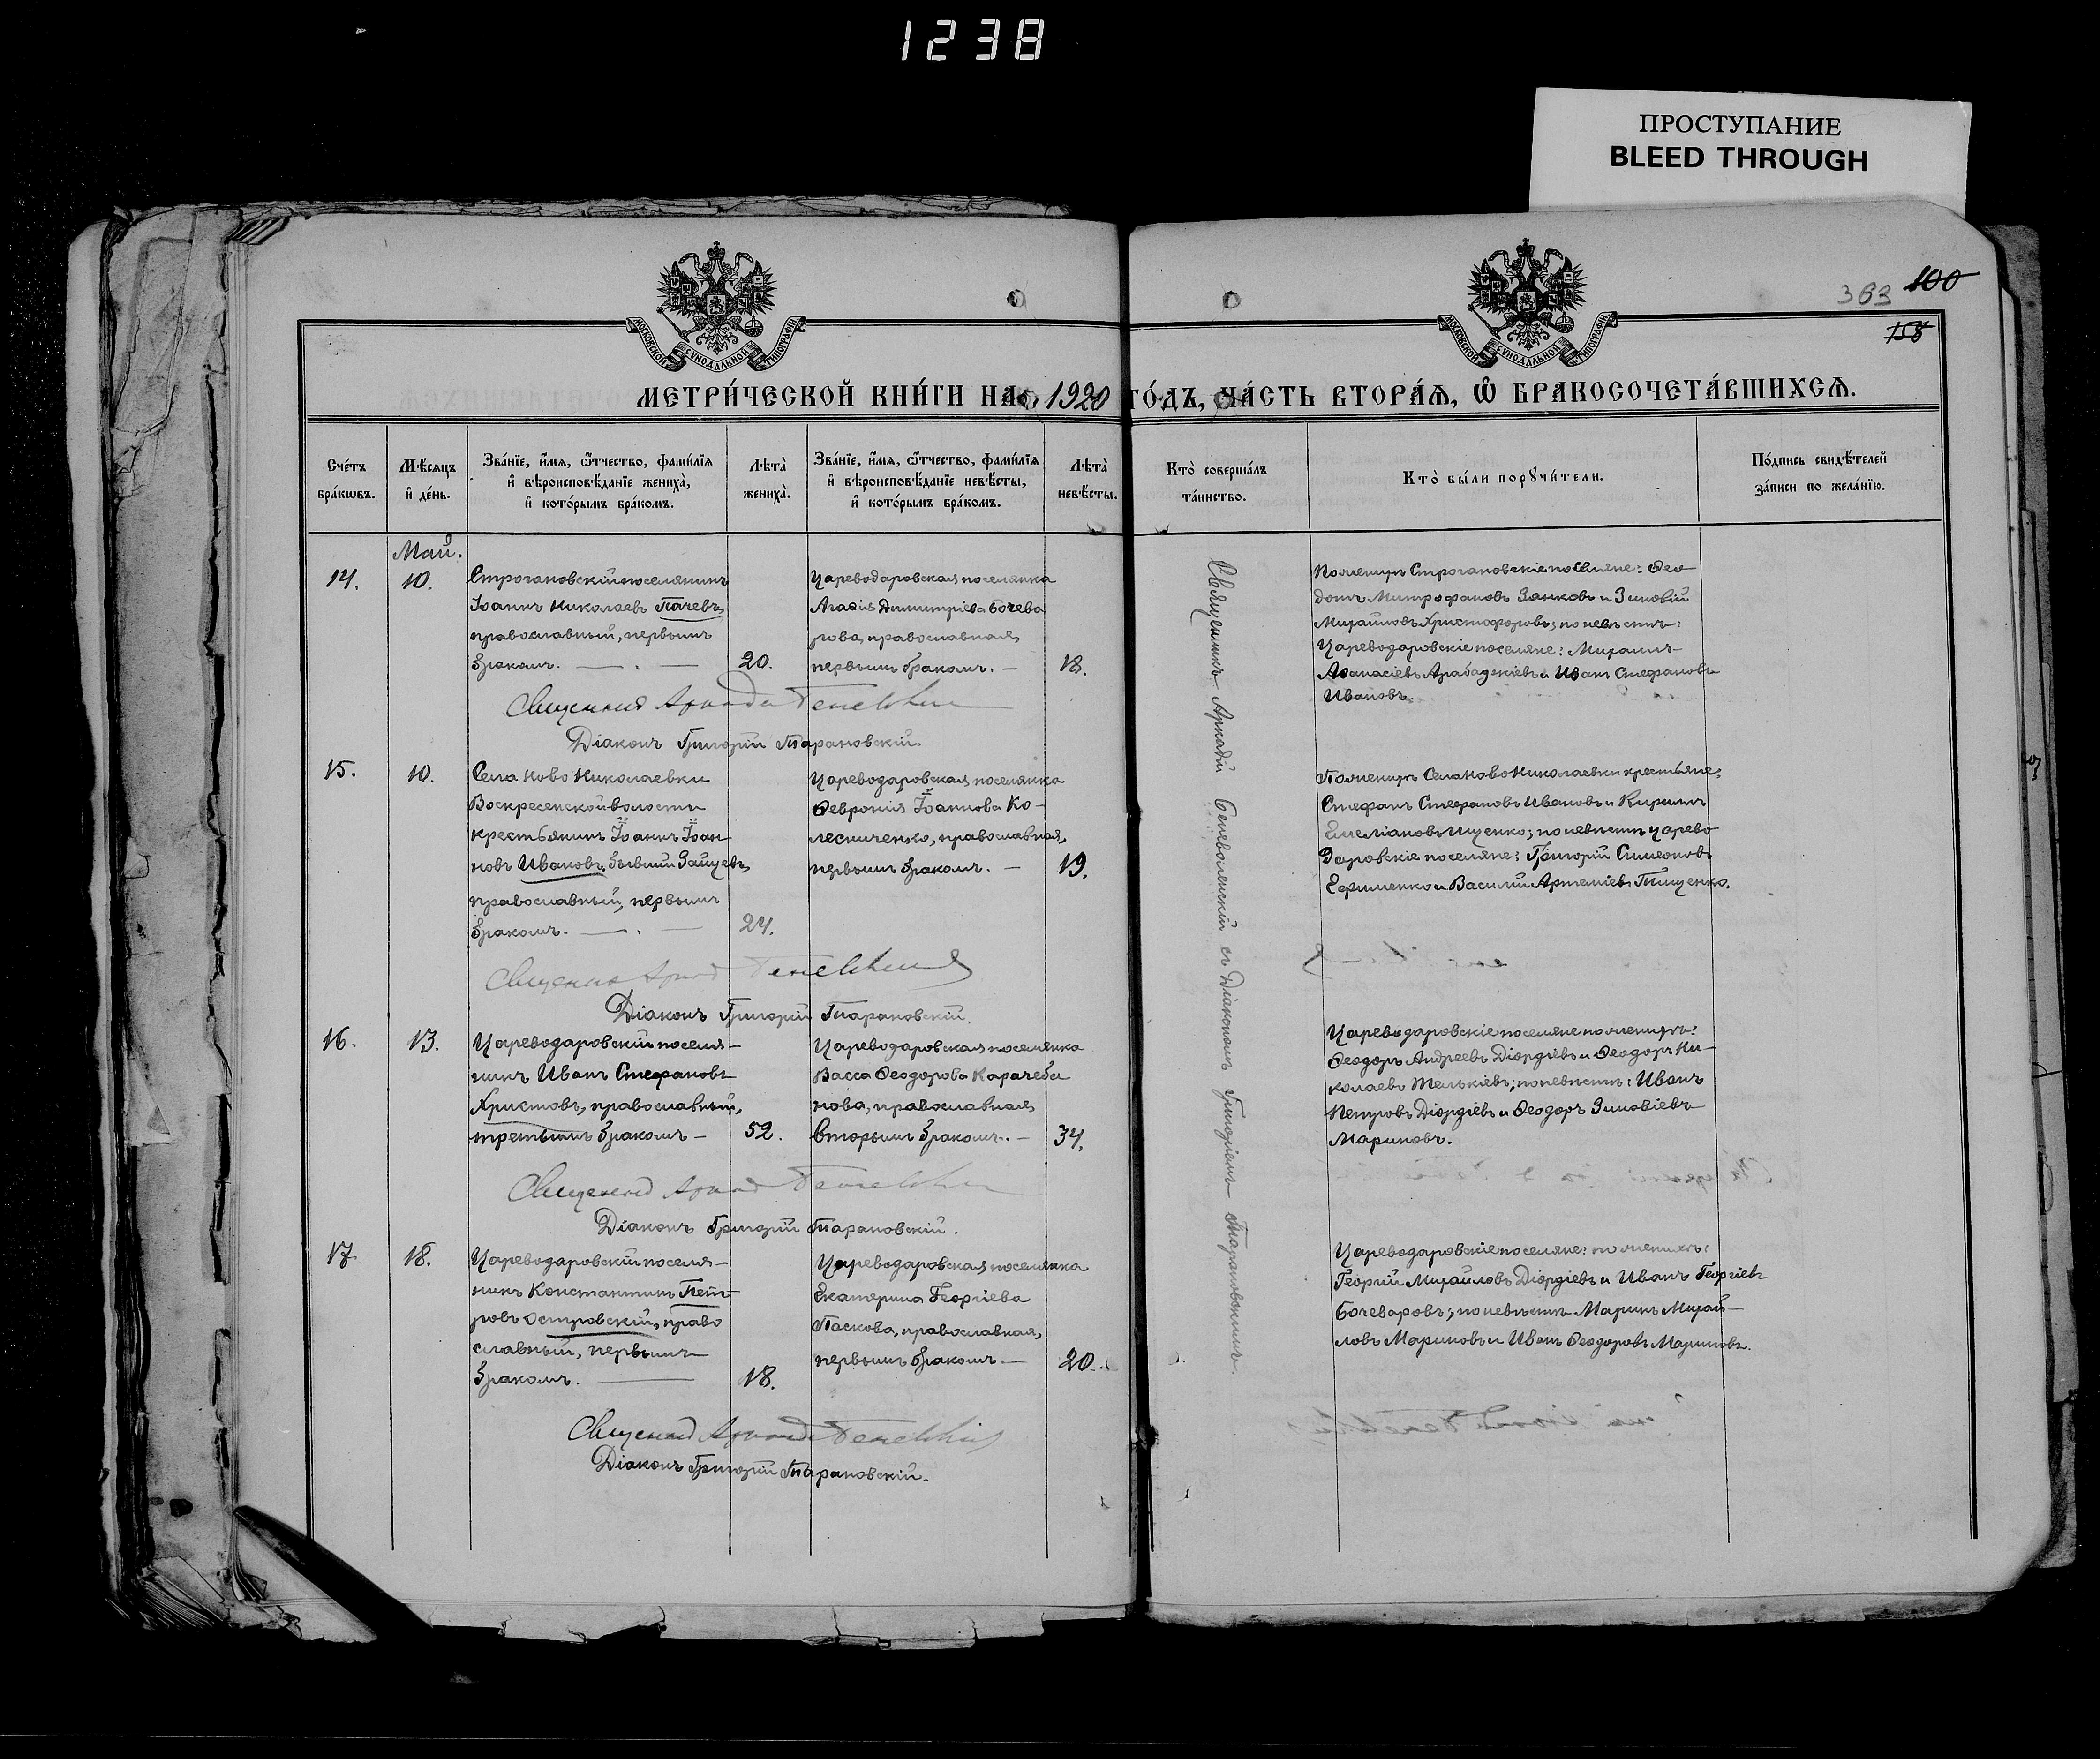 1238
ПРОСТУПАНИЕ
BLEED THROUGH
МОСКОВСКОЙ СѴНОДАЛЬНОЙ ТИПОГРАФІИ
МОСКОВСКОЙ СѴНОДАЛЬНОЙ ТИПОГРАФІИ
363 100
158
МЕТРИ́ЧЕСКОЙ КНИ́ГИ НА 1920 ГО́ДЪ, ЧА́СТЬ ВТОРА́Ѧ, Ѡ҆ БРАКОСОЧЕТА́ВШИХСѦ.
Сче́тъ
бра́кѡвъ.
Мѣ́сяцъ
и҆ де́нь.
Зва́нїе, и҆́мя, ѻ҆́тчество, фами́лїя
и҆ вѣроисповѣ́данїе жениха̀,
и҆ кото́рымъ бра́комъ.
Лѣта̀
жениха̀.
Зва́нїе, и҆́мя, ѻ҆́тчество, фами́лїя
и҆ вѣроисповѣ́данїе невѣ́сты,
и҆ кото́рымъ бра́комъ.
Лѣта̀
невѣ́сты.
Кто̀ соверша́лъ
та́инство.
Кто̀ бы́ли порꙋчи́тели.
По́дпись свидѣ́телей
за́писи по жела́нїю.
Май.
14.
10.
Строгановскій поселянинъ
Іоаннъ Николаевъ Пачевъ,
православный, первымъ
бракомъ. — . —
20.
Цареводаровская поселянка
Агафія Димитріева Бочева
рова, православная,
первымъ бракомъ. —
18.
По женихѣ Строгановскіе поселяне: Ѳео
дотъ Митрофановъ Занковъ и Зиновій
Михайловъ Христофоровъ; по невѣстѣ:
Цареводаровскіе поселяне: Михаилъ
Аѳанасіевъ Арабаджіевъ и Иванъ Стефановъ
Ивановъ.
Священникъ Аркадій
Діаконъ Григорій Тарановскій.
15.
10.
Села Ново Николаевки
Воскресенской волости
крестьянинъ Іоаннъ Іоан
новъ Ивановъ, бывшій Зайцевъ,
православный, первымъ
бракомъ. — . —
24.
Цареводаровская поселянка
Ѳевронія Іоаннова Ко-
лесниченко, православная,
первымъ бракомъ. —
19.
По женихѣ Села Ново Николаевки крестьяне:
Стефанъ Стефановъ Ивановъ и Кириллъ
Емеліановъ Ищенко; по невѣстѣ Царево
даровскіе поселяне: Григорій Симеоновъ
Ефименко и Василій Артеміевъ Тищенко.
Священникъ Аркадій
Діаконъ Григорій Тарановскій.
16.
13.
Цареводаровскій поселя-
нинъ Иванъ Стефановъ
Христовъ, православный,
третьимъ бракомъ —
52.
Цареводаровская поселянка
Васса Ѳеодорова Карачеба
нова, православная,
вторымъ бракомъ. —
34.
Цареводаровскіе поселяне по женихѣ:
Ѳеодоръ Андреевъ Діордіевъ и Ѳеодоръ Ни-
колаевъ Телькіевъ; по невѣстѣ: Иванъ
Петровъ Діордіевъ и Ѳеодоръ Зиновіевъ
Мариновъ.
Священникъ Аркадій
Діаконъ Григорій Тарановскій.
17.
18.
Цареводаровскій поселя-
нинъ Константинъ Пет
ровъ Островскій, право
славный, первымъ
бракомъ. —
18.
Цареводаровская поселянка
Екатерина Георгіева
Паскова, православная,
первымъ бракомъ. —
20.
Цареводаровскіе поселяне: по женихѣ:
Георгій Михайловъ Діордіевъ и Иванъ Георгіевъ
Бочеваровъ; по невѣстѣ Маринъ Михай-
ловъ Мариновъ и Иванъ Ѳеодоровъ Мариновъ.
Священникъ Аркадій
Діаконъ Григорій Тарановскій.
Священникъ Аркадій Беневоленскій съ Діакономъ Григоріемъ Тарановскимъ.